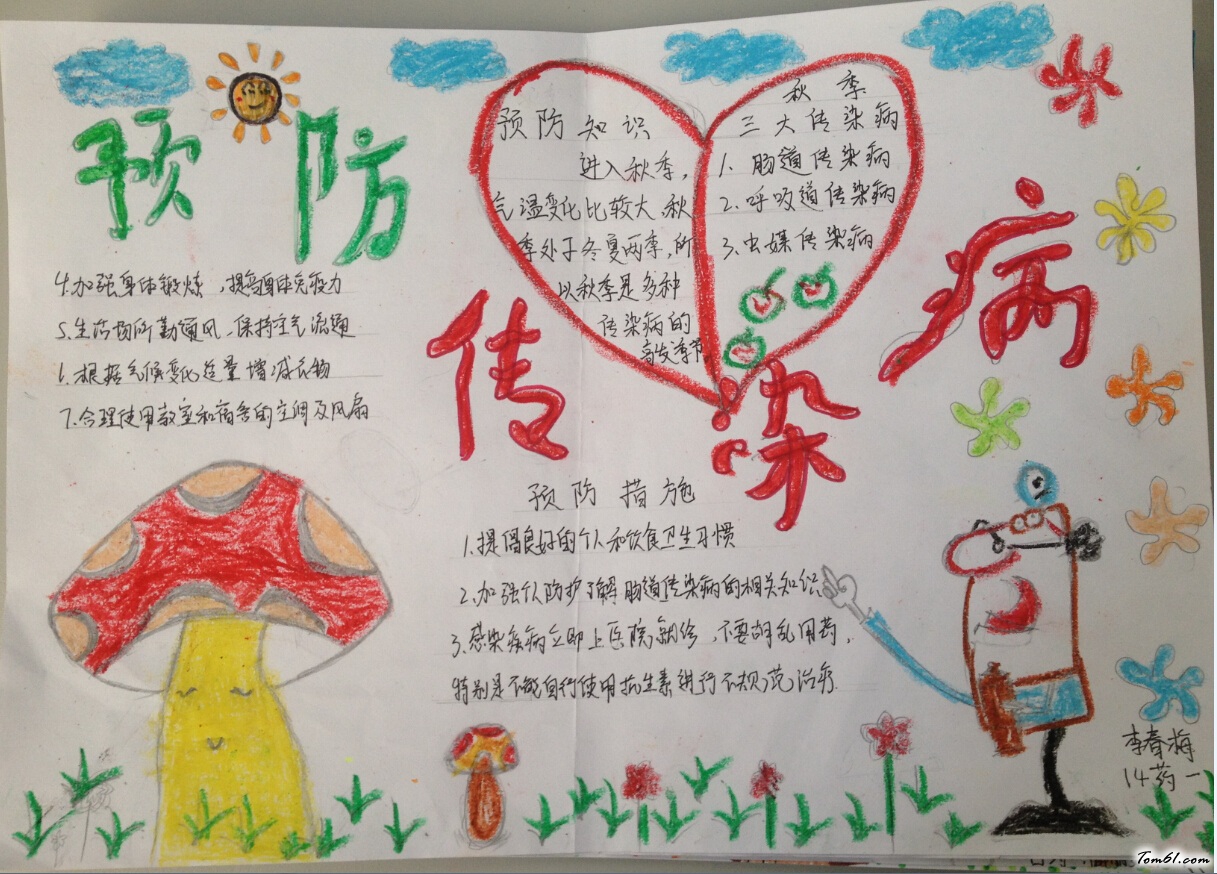 预防
传染病
预防知识
进入秋季,
气温变化比较大,秋
季处于冬夏两季,所
以秋季是多种
传染病的
高发季节
秋季
三大传染病
1. 肠道传染病
2. 呼吸道传染病
3. 虫媒传染病
预防措施
1.提倡良好的个人和饮食卫生习惯
2.加强个人防护了解肠道传染病的相关知识
3.感染疾病立即上医院就诊,不要胡乱用药,
特别是不能自行使用抗生素进行不规范治疗
4.加强身体锻炼,提高自体免疫力
5.生活场所勤通风,保持空气流通
6.根据气候变化适量增减衣物
7.合理使用教室和宿舍的空调及风扇
李春梅
14药一
Tom61.com